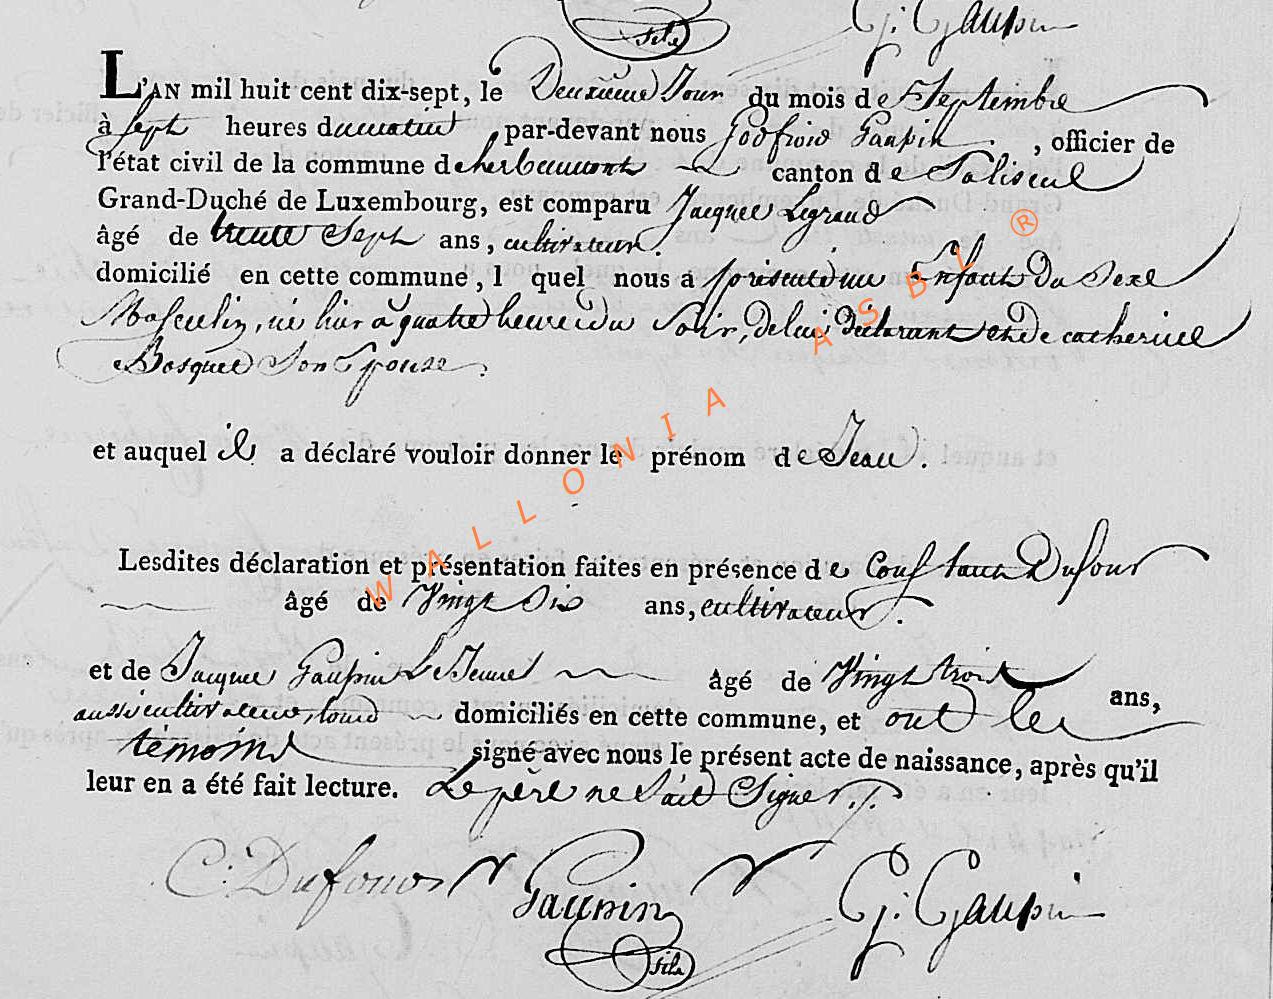 fils G: Gaupin
L'AN mil huit cent dix-sept, le Deuxieme Jour du mois de Septembre
à sept heures du matin, par-devant nous Godfroid Gaupin, officier de
l'état civil de la commune d'herbeumont canton de Paliseul
Grand-Duché de Luxembourg, est comparu Jacques Legrand
âgé de trente Sept ans, cultivateur.
domicilié en cette commune, lequel nous a présenté un Enfant Du Sexe
Masculin, né hier à quatre heures du Soir, de lui Déclarant et de catherine
Bosquet Son Epouse.
et auquel il a déclaré vouloir donner le prénom de Jean.
Lesdites déclaration et présentation faites en présence de Constant Dufour
âgé de Vingt Six ans, cultivateur.
et de Jacques Gaupin Le Jeune âgé de Vingt trois ans,
aussi cultivateur, tous domiciliés en cette commune, et ont les
témoins signé avec nous le présent acte de naissance, après qu'il
leur en a été fait lecture. Le père ne Sait Signer.
C: Dufour Gaupin G: Gaupin
fils
WALLONIA ASBL ®